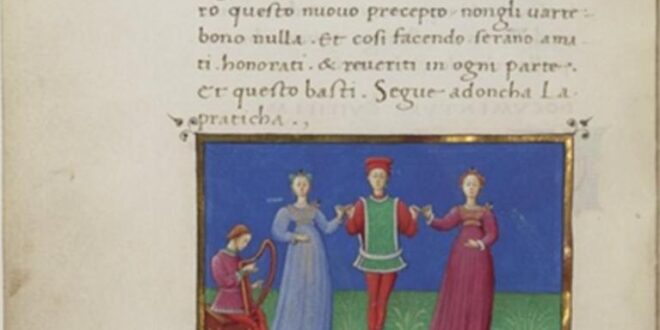 ro questo nuovo precepto nongli varte
bono nulla. Et cosi facendo serano ama
ti. honorati. & reveriti in ogni parte.
et questo basti. Segue adoncha La
praticha.,